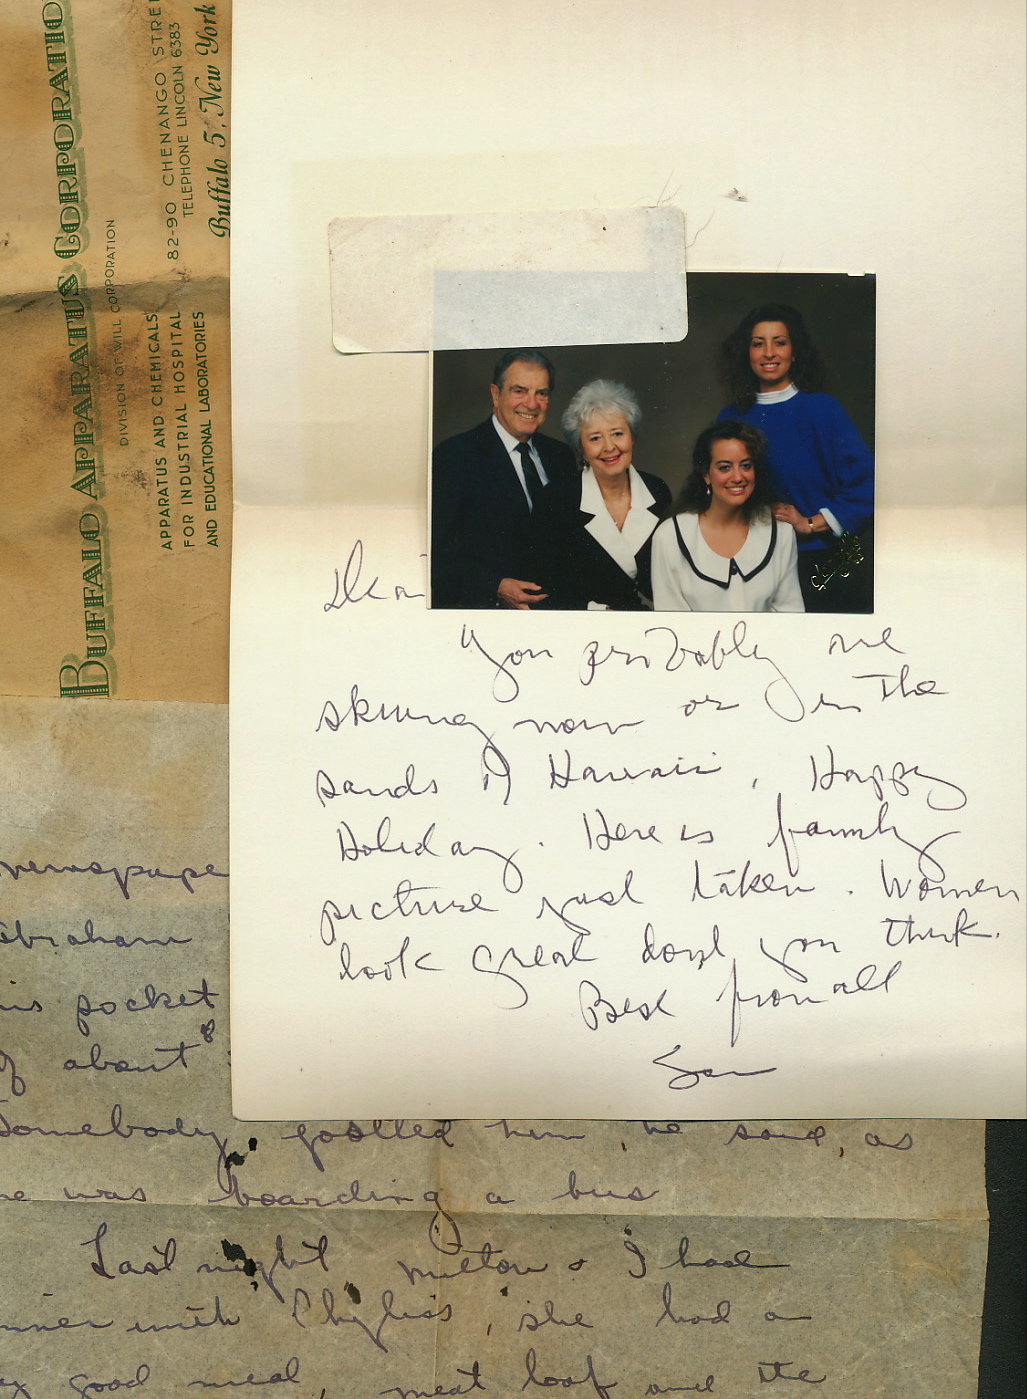 BUFFALO APPARATUS CORPORATIO
DIVISION OF WILL CORPORATION
APPARATUS AND CHEMICALS
FOR INDUSTRIAL HOSPITAL
AND EDUCATIONAL LABORATORIES
82-90 CHENANGO STRE
TELEPHONE LINCOLN 6383
Buffalo 5, New York
Dea
You probably are
skiing now or on the
sands of Hawaii, Happy
Holiday. Here is family
picture just taken. Women
look great dont you think.
Best from all
Sam
newspape
Abraham
is pocket
f about
Somebody jostled him, he said, as
he was boarding a bus
Last night Milton & I had
inner with Phyliss, she had a
good meal, meat loaf and the